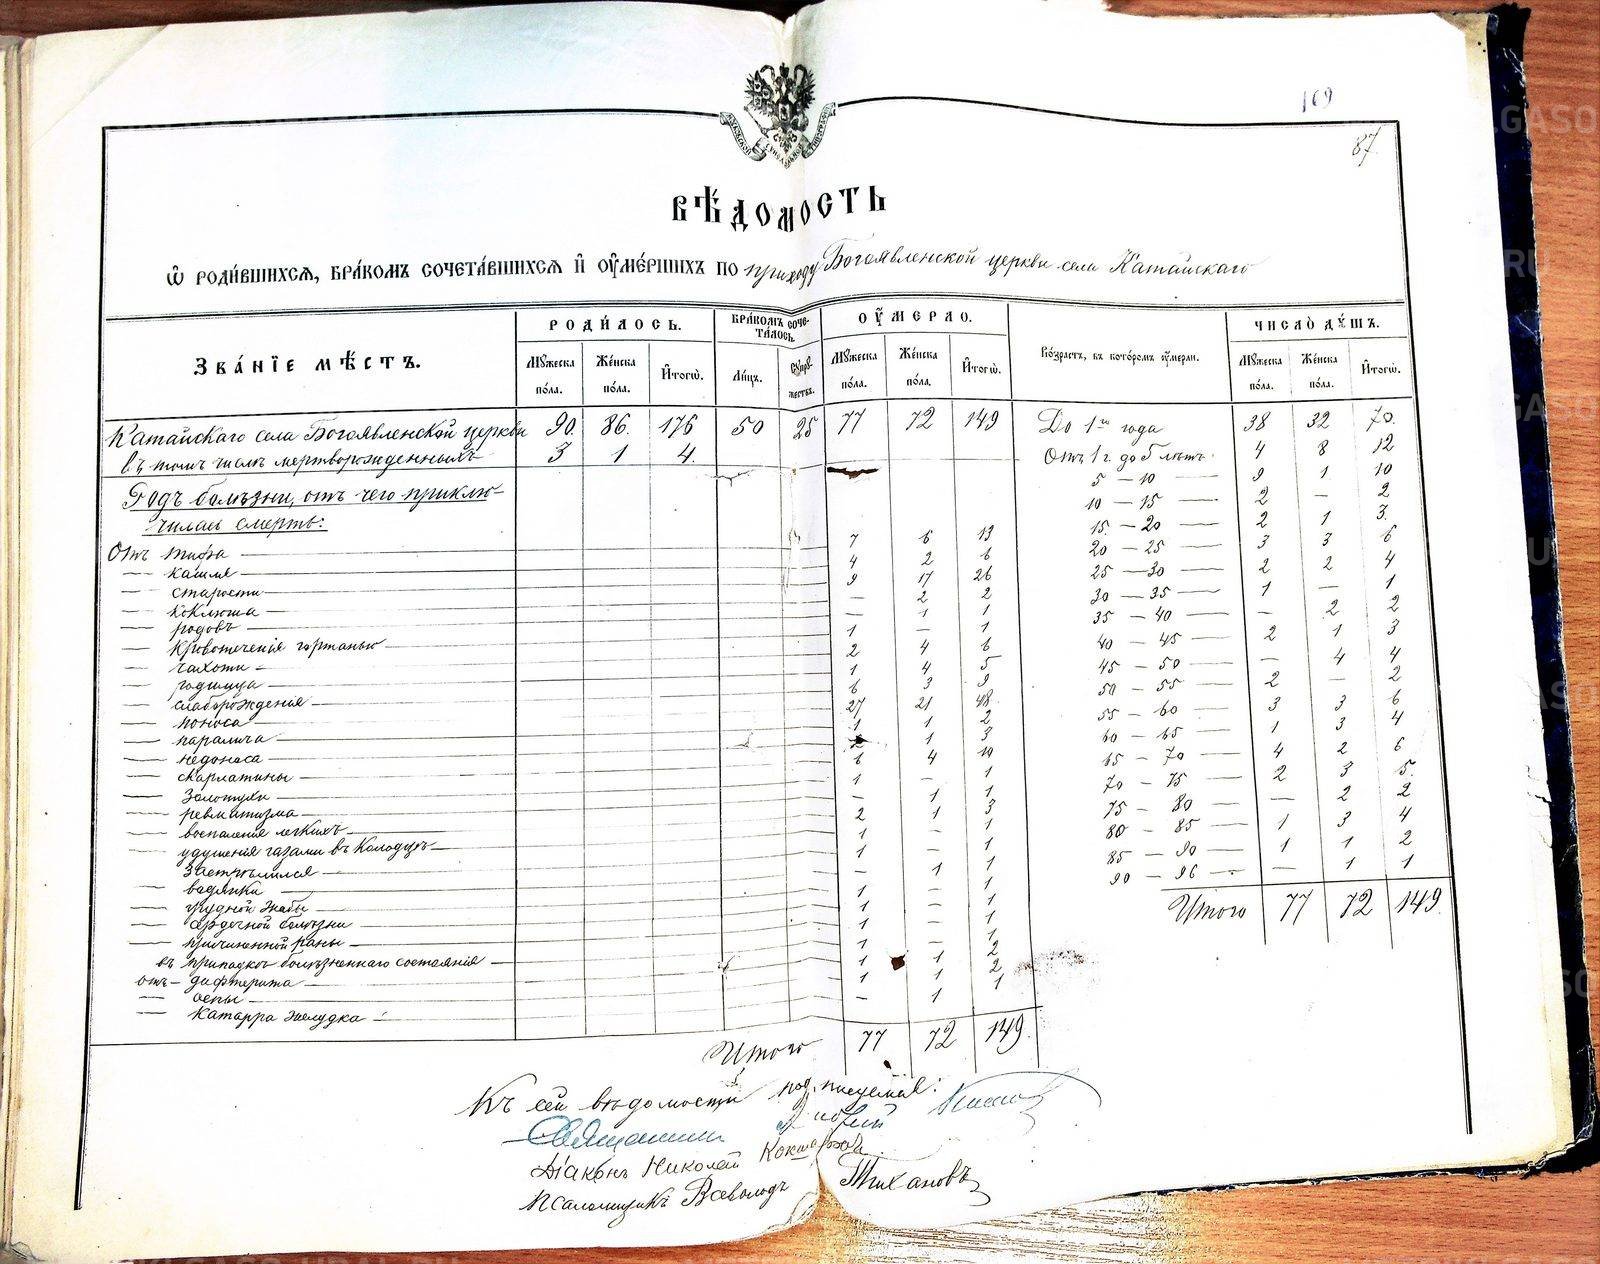 169
87
ВѢ́ДОМОСТЬ
Ѽ РОДИ́ВШИХСѦ, БРА́КОМЪ СОЧЕТА́ВШИХСѦ И҆ ОУ҆МЕ́РШИХЪ ПО приходу Богоявленской церкви села Катайскаго
ЗВА́НІЕ МѢ́СТЪ.
РОДИ́ЛОСЬ.
БРА́КОМЪ СОЧЕ-
ТА́ЛОСЬ.
ОУ҆МЕРЛО.
Во́зрастъ, въ кото́ромъ оу҆мерли.
ЧИСЛО̀ ДУ́ШЪ.
Мꙋ́жеска по́ла. Же́нска по́ла. И҆тогѡ̀. Ли́цъ. Сꙋпрꙋ́жествъ. Мꙋ́жеска по́ла. Же́нска по́ла. И҆тогѡ̀. Мꙋ́жеска по́ла. Же́нска по́ла. И҆тогѡ̀.
Катайскаго села Богоявленской церкви 90. 86. 176 50 25 77 72 149 До 1го года 38 32 70.
въ томъ числѣ мертворожденныхъ 3 1 4. Отъ 1 г. до 5 лѣтъ 4 8 12
5 — 10 9 1 10
Родъ болѣзни, отъ чего приклю-
чилась смерть:
10 — 15 2 — 2
15 — 20 2 1 3.
Отъ тифа 7 6 13 20 — 25 3 3 6
— кашля 4 2 6 25 — 30 2 2 4
— старости 9 17 26 30 — 35 1 — 1
— коклюша — 2 2 35 — 40 — 2 2
— родовъ — 1 1 40 — 45 2 1 3
— кровотеченія гортанью 1 — 1 45 — 50 — 4 4
— чахотки 2 4 6 50 — 55 2 — 2
— родимца 1 4 5 55 — 60 3 3 6
— слаборожденія 6 3 9 60 — 65 1 3 4
— поноса 27 21 48 65 — 70 4 2 6
— паралича 1 1 2 70 — 75 2 3 5.
— недоноса 2 1 3 75 — 80 — 2 2
— скарлатины 6 4 10 80 — 85 1 3 4
— золотухи 1 — 1 85 — 90 1 1 2
— ревматизма — 1 1 90 — 96 — 1 1
— воспаленія легкихъ 2 1 3 Итого 77 72 149.
— удушенія газами въ колодцѣ 1 — 1
застрѣлился 1 — 1
— водянки — 1 1
— грудной жабы 1 — 1
— сердечной болѣзни 1 — 1
— причиненной раны 1 — 1
въ припадкѣ болѣзненнаго состоянія 1 — 1
отъ — дифтерита 1 1 2
— оспы 1 1 2
— катарра желудка — 1 1
Итого 77 72 149.
Къ сей вѣдомости подписуемся:
Священникъ
Діаконъ Николай Кокшаровъ
Псаломщикъ Всеволодъ Тихановъ